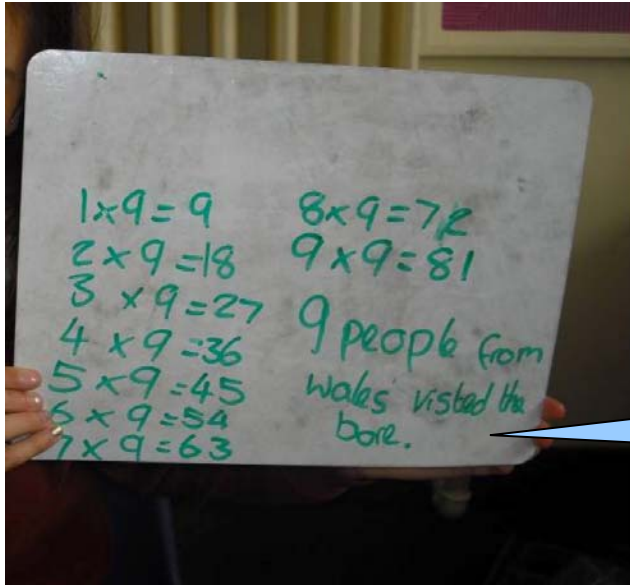 1x9=9
2x9=18
3 x9=27
4 x9=36
5x9=45
6x9=54
7x9=63
8x9=72
9x9=81
9 people from
wales visted the
bore.